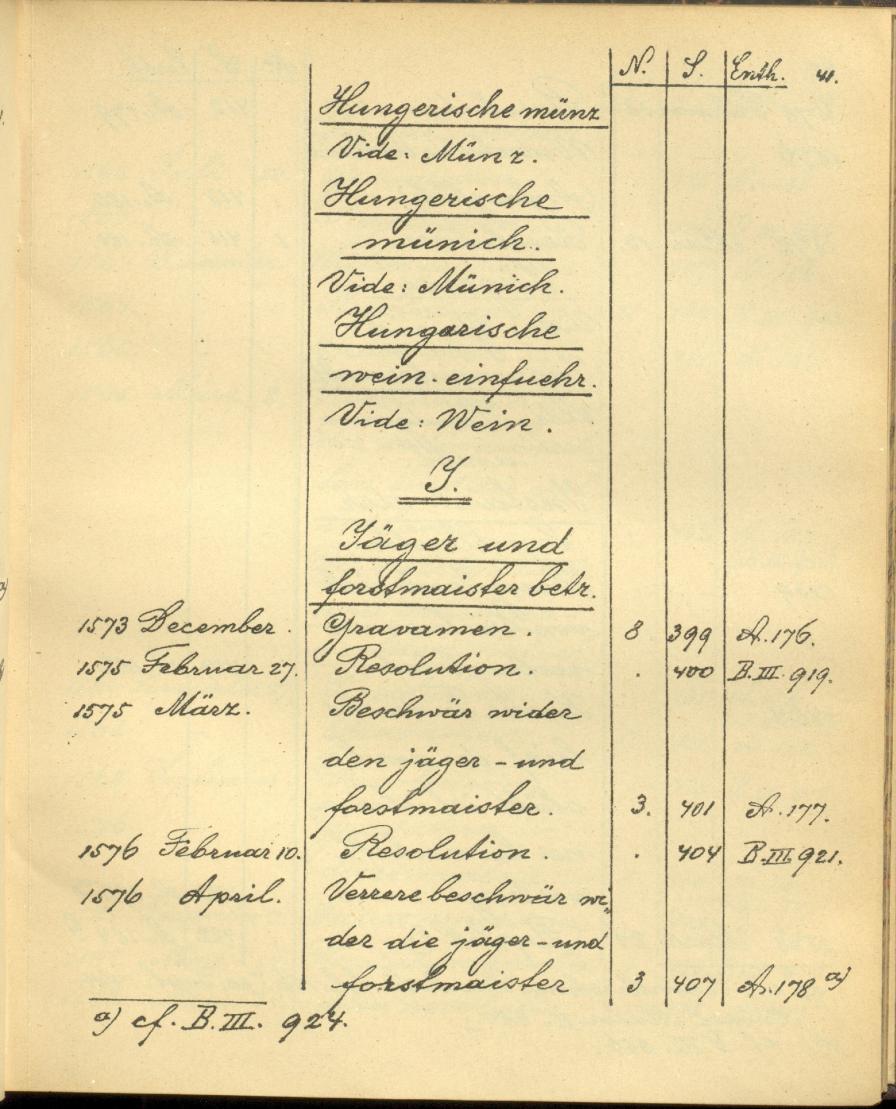 N. S. Enth. 41.
Hungerische münz
Vide: Münz.
Hungerische
münich.
Vide: Münich.
Hungarische
wein-einfuehr.
Vide: Wein.
J.
Jäger und
forstmaister betr.
1573 December. Gravamen. 8 399 A.176.
1575 Februar 27. Resolution. . 400 B.III. 919.
1575 März. Beschwär wider
den jäger-und
forstmaister. 3. 401 A.177.
1576 Februar 10. Resolution. . 404 B.III. 921.
1576 April. Verrere beschwär wi„
der die jäger-und
forstmaister 3 407 A.178 a)
a) cf. B.III. 924.